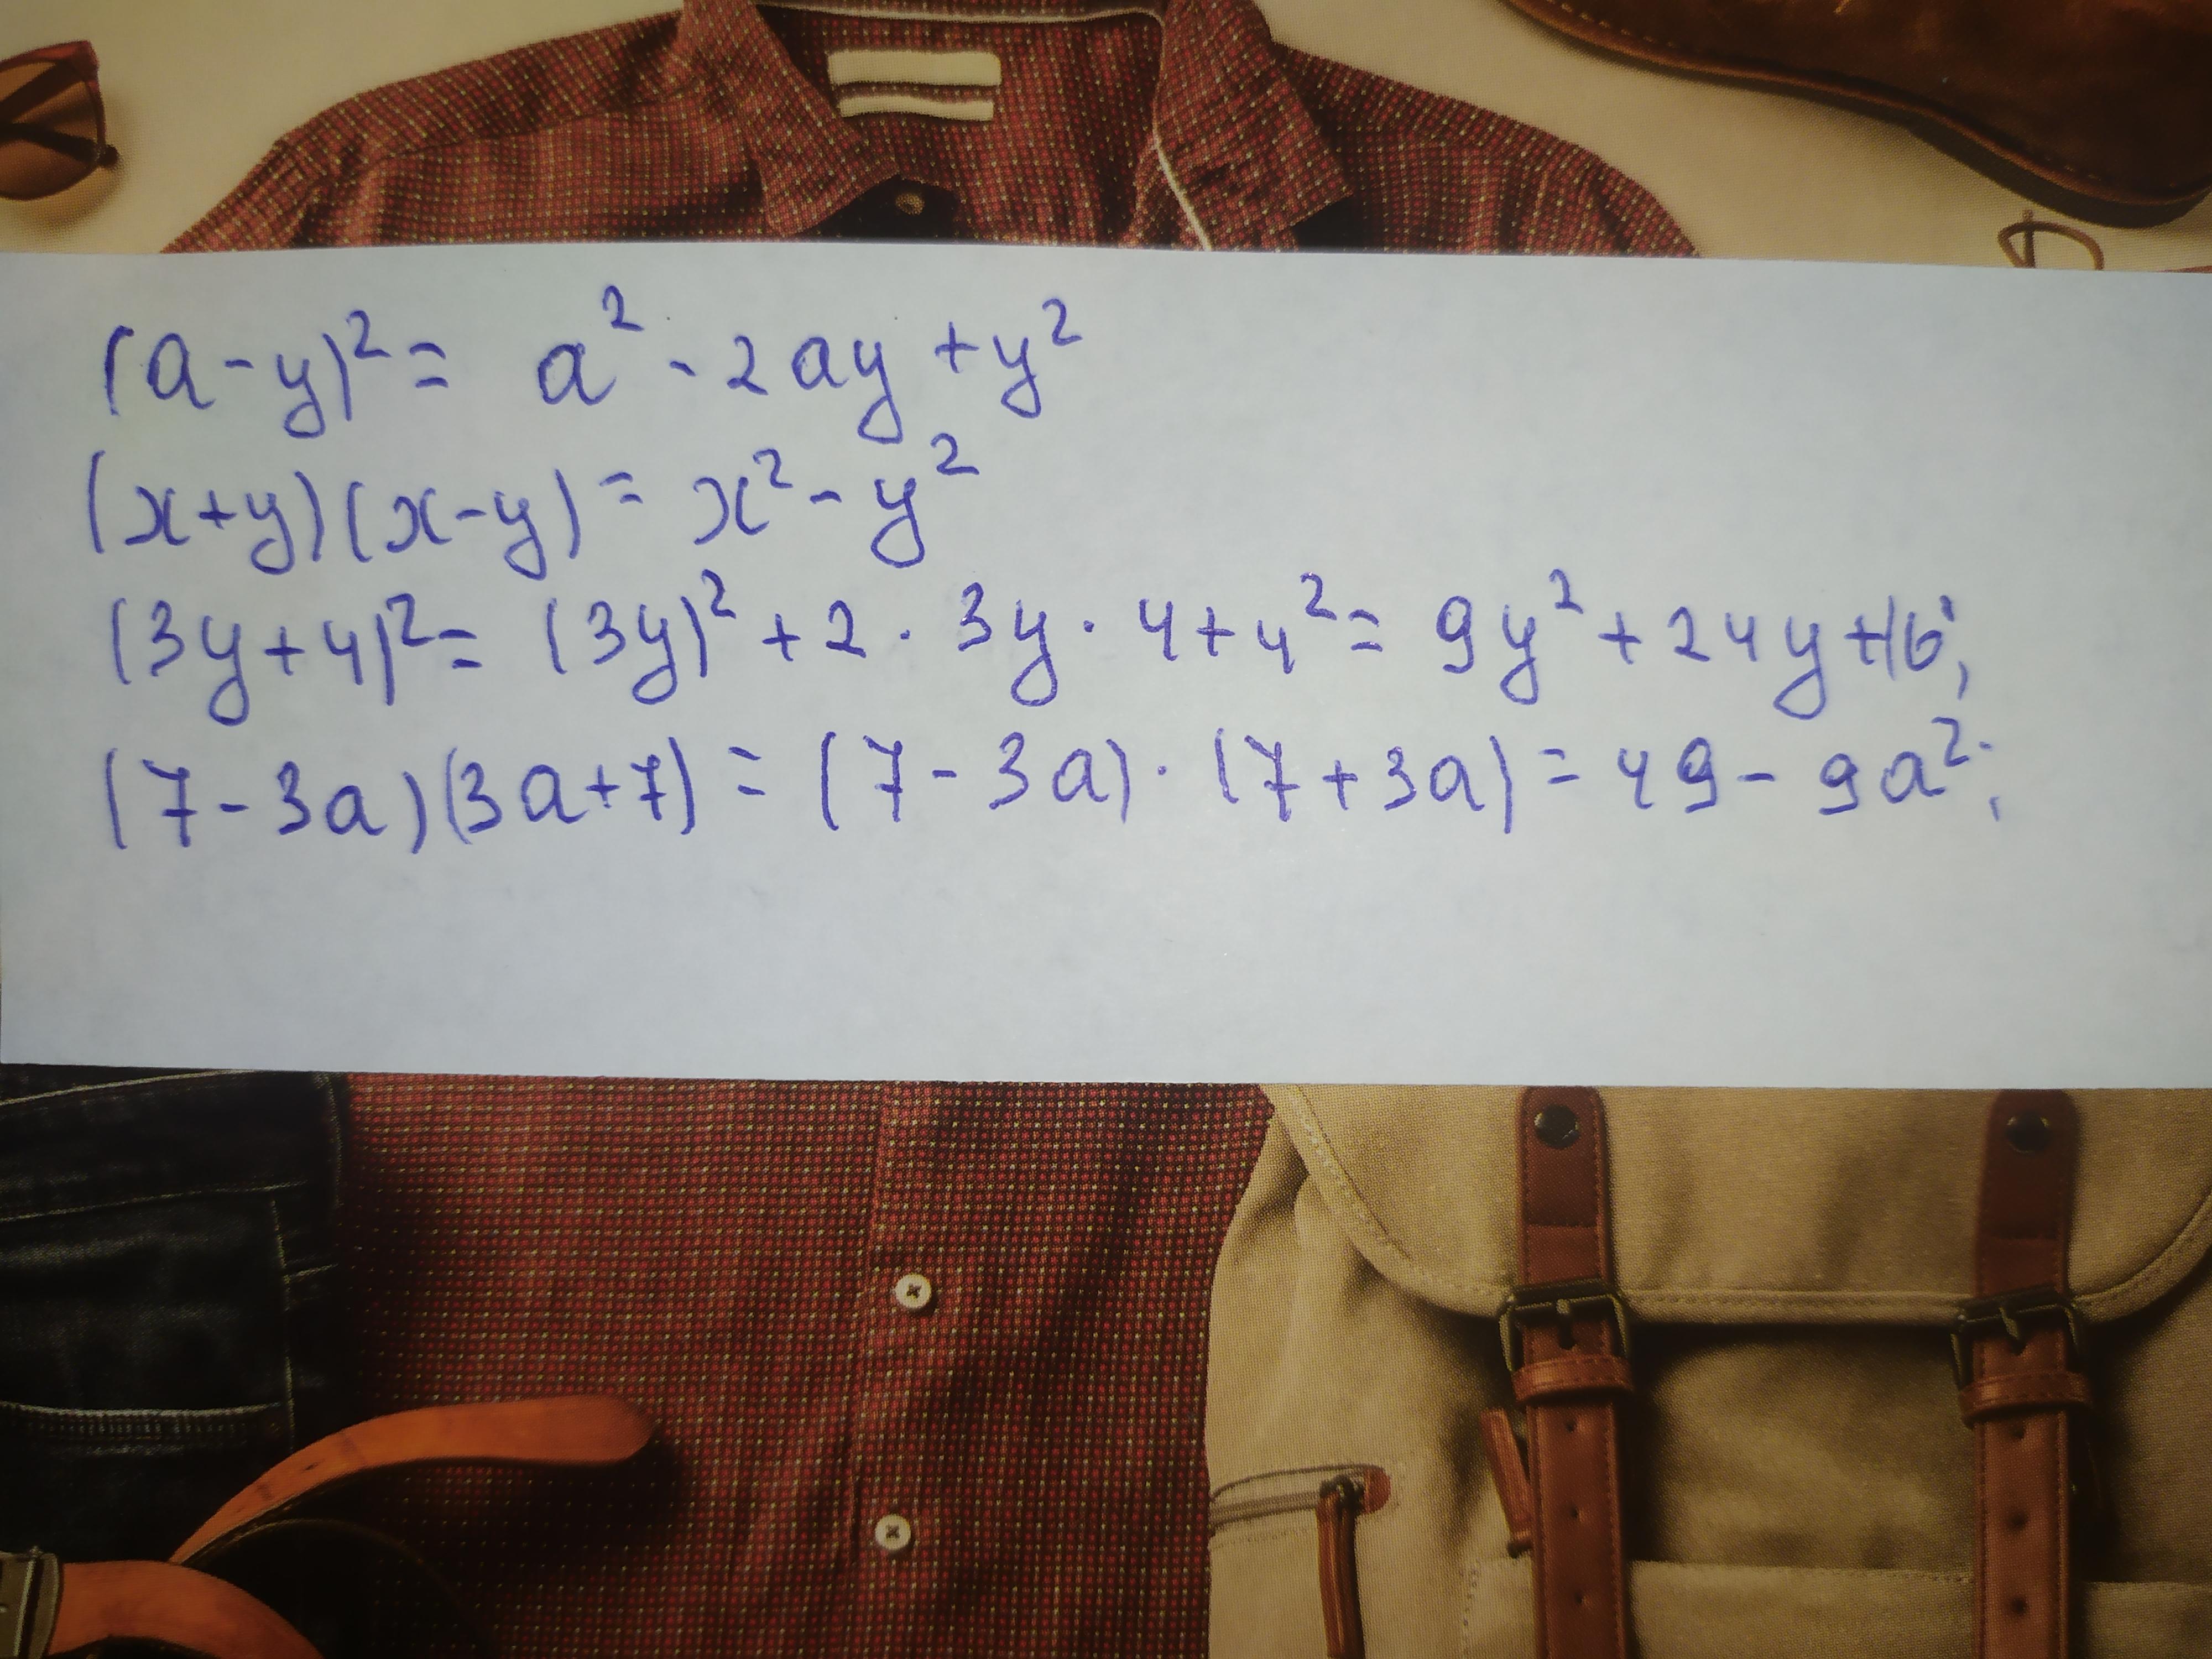 (a-y)² = a² - 2ay + y²
(x+y)(x-y) = x² - y²
(3y+4)² = (3y)² + 2 · 3y · 4 + 4² = 9y² + 24y + 16;
(7-3a)(3a+7) = (7-3a) · (7+3a) = 49 - 9a²;